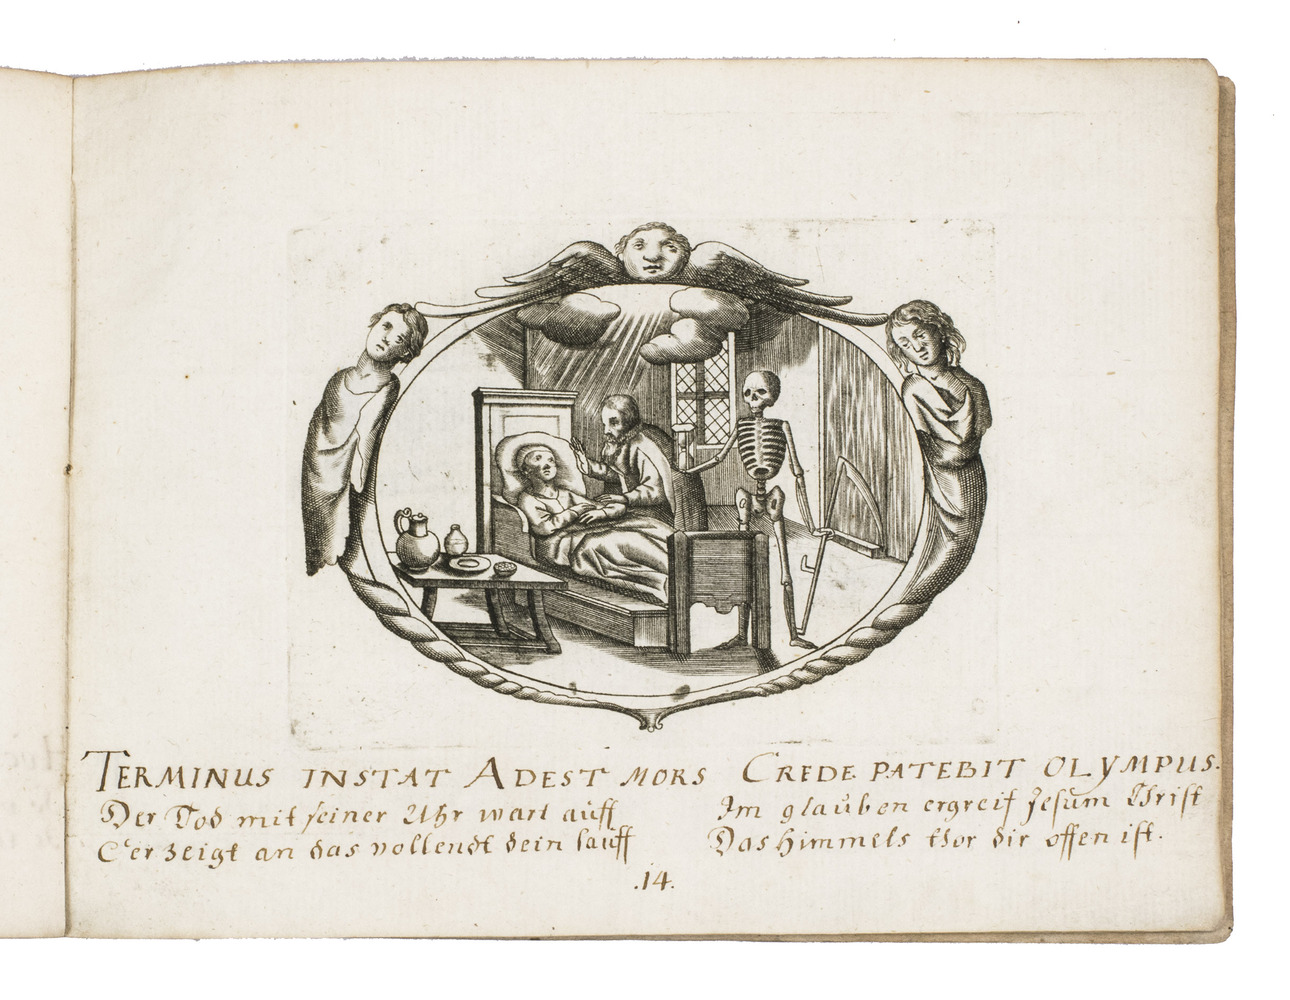 TERMINUS INSTAT ADEST MORS CREDE PATEBIT OLYMPUS.
Der Tod mit seiner Uhr wart auff
Er zeigt an das vollendt dein lauff
Im glauben ergreif Jesum Christ
Das Himmels thor dir offen ist.
.14.